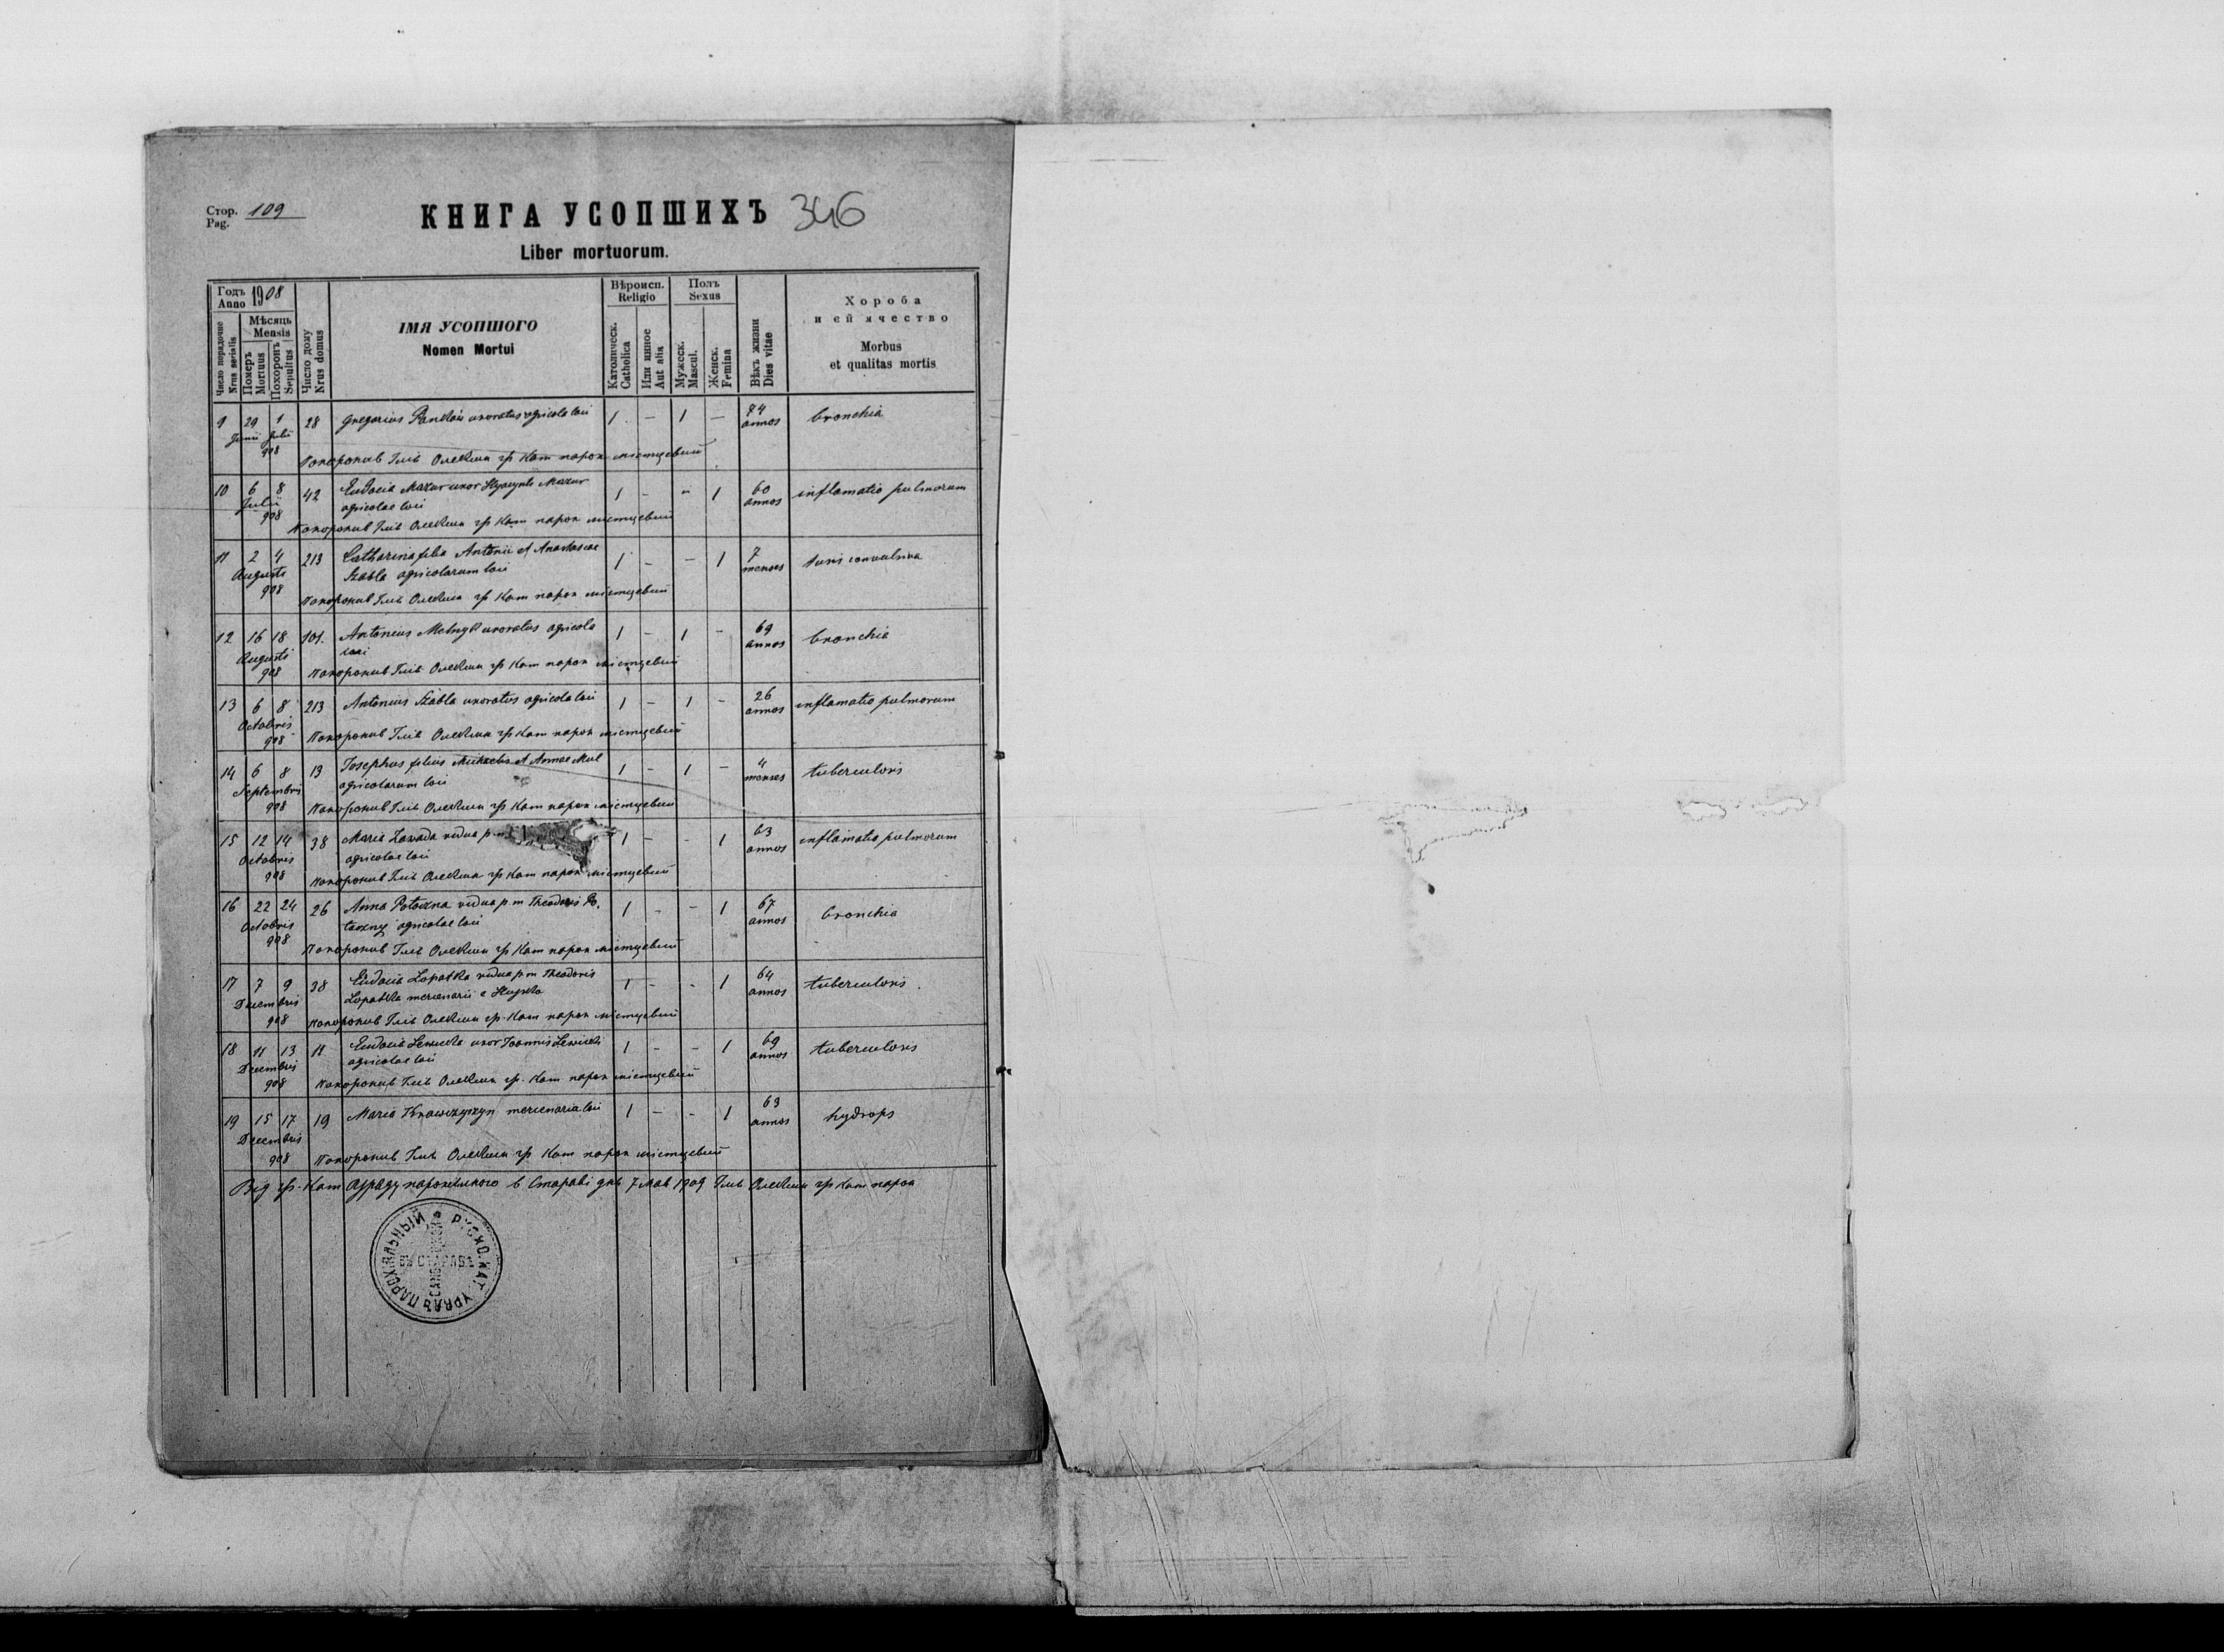 Стор. 109
Pag.
КНИГА УСОПШИХЪ 346
Liber mortuorum.
Годъ 1908
Anno
Мѣсяць
Mensis
Число порядочне
Nrus serialis
Померъ
Mortuus
Похоронъ
Sepultus
Число дому
Nrus domus
ІМЯ УСОПШОГО
Nomen Mortui
Вѣроисп.
Religio
Католическ.
Catholica
Или инное
Aut alia
Полъ
Sexus
Мужеск.
Mascul.
Женск.
Femina
Вѣкъ жизни
Dies vitae
Хороба
и ей ячество
Morbus
et qualitas mortis
9 29 1 28 Gregorius uxoratus agricola loci 1 – 1 – 74 bronchia
Junii Julii annos
908 Похоронив Гліб Олексин гр Кат парох містцевий
10 6 8 42 Eudocia Mazur uxor Hyacynti Mazur 1 – – 1 60 inflamatio pulmorum
Julii agricolae loci annos
908 Похоронив Гліб Олексин гр Кат парох містцевий
11 2 4 213 Catharina filia Antonii et Anastasiae 1 – – 1 7 tusis convulsiva
Augusti Szabla agricolarum loci menses
908 Похоронив Гліб Олексин гр Кат парох містцевий
12 16 18 101. Antonius Melnyk uxoratus agricola 1 – 1 – 69 bronchia
Augusti loci annos
908 Похоронив Гліб Олексин гр Кат парох містцевий
13 6 8 213 Antonius Szabla uxoratus agricola loci 1 – 1 – 26 inflamatio pulmorum
Octobris annos
908 Похоронив Гліб Олексин гр Кат парох містцевий
14 6 8 13 Josephus filius Michaelis et Annae Mul 1 – 1 – 4 tuberculosis
Septembris agricolarum loci menses
908 Похоронив Гліб Олексин гр Кат парох містцевий
15 12 14 38 Maria Zawada vidua p 1 – – 1 63 inflamatio pulmorum
Octobris agricolae loci annos
908 Похоронив Гліб Олексин гр Кат парох містцевий
16 22 24 26 Anna Potoczna vidua p m Theodoris Po- 1 – – 1 67 bronchia
Octobris agricolae loci annos
908 Похоронив Гліб Олексин гр Кат парох містцевий
17 7 9 38 Eudocia Lopatka vidua p m Theodoris 1 – – 1 64 tuberculosis
Decembris Lopatka mercenarii e annos
908 Похоронив Гліб Олексин гр. Кат парох містцевий
18 11 13 11 Eudocia Lewicka uxor Joannis Lewicki 1 – – 1 69 tuberculosis
Decembris agricolae loci annos
908 Похоронив Гліб Олексин гр. Кат парох містцевий
19 15 17 19 Maria mercenaria loci 1 – – 1 63 hydrops
Decembris annos
908 Похоронив Гліб Олексин гр Кат парох містцевий
Від гр. Кат Оуряду парохіяльного в Стараві дня 7 Мая 1909 Гліб Олексин гр Кат парох
РУСКО. КАТ. УРЯДЪ ПАРОХІАЛЬНЫЙ
ВЪ СТАРАВѢ